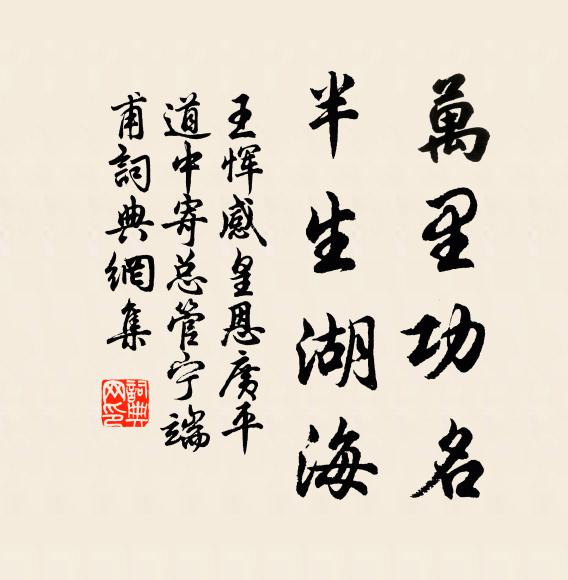 萬里功名
半生湖海
王惲感皇恩廣平
道中寄总管宁端
甫詞典網集
詞典
网印